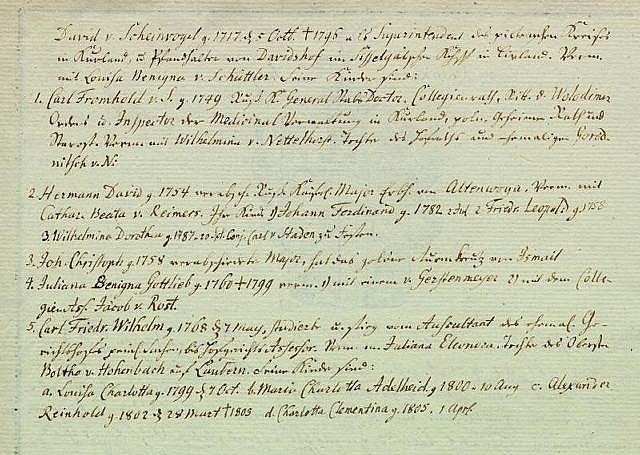 David v. Scheinvogel g. 1717 d. 5 Octb. † 1795 a ls Superintendent des piltenschen Kreises
in Kurland, u Pfandhalter von Davidshof im Sissegalschen Kirchsp. in Livland. Verm.
mit Louisa Benigna v. Schüttler. Seine Kinder sind:
1. Carl Fromhold v. S. g. 1749 Russ. K. General Stabs Doctor, Collegienrath, Ritt. d. Wolodimer
Ordens u. Inspector der Medicinal Verwaltung in Kurland, poln. Geheimer Rath und
Starost. Verm. mit Wilhelmina v. Nettelhorst. Tochter des Hofraths und ehemaligen Gorod-
nitsch v. N.
2. Hermann David g. 1754 verabsch. Russ. Kays. Major Erbh. von Altenwoga. Verm. mit
Cathar. Beata v. Reimers. Ihr Kind 1) Johann Ferdinand g. 1782 2 Jul 2. Friedr. Leopold g. 1758
3. Wilhelmina Dorothea g. 1787 20 Conj. Carl v Haden, zu
3. Joh. Christoph g. 1758 verabschiedeter Major, hat das goldne Kreutz von Ismail
4. Juliana Benigna Gottlieb g. 1760 † 1799 verm. 1) mit einem v. Gerstenmeyer 2) mit dem Colle-
gien Ass. Jacob v. Rost.
5. Carl Friedr. Wilhelm g. 1768 d. 7 May, studierte u. stieg vom Auscultant des ehemal. Ge-
richtshofs bis Hofgerichts Assessor. Verm. m. Juliana Eleonora. Tochter des Obersten
Boltho v. Hohenbach auf Lautern. Seine Kinder sind:
a. Louisa Charlotta g. 1799 d. 7 Oct. b. Marie Charlotta Adelheid g. 1800 10 Aug c. Alexander
Reinhold g. 1802 d. 28 Mart † 1803 d. Charlotta Clementina g. 1805. 1 Apr.